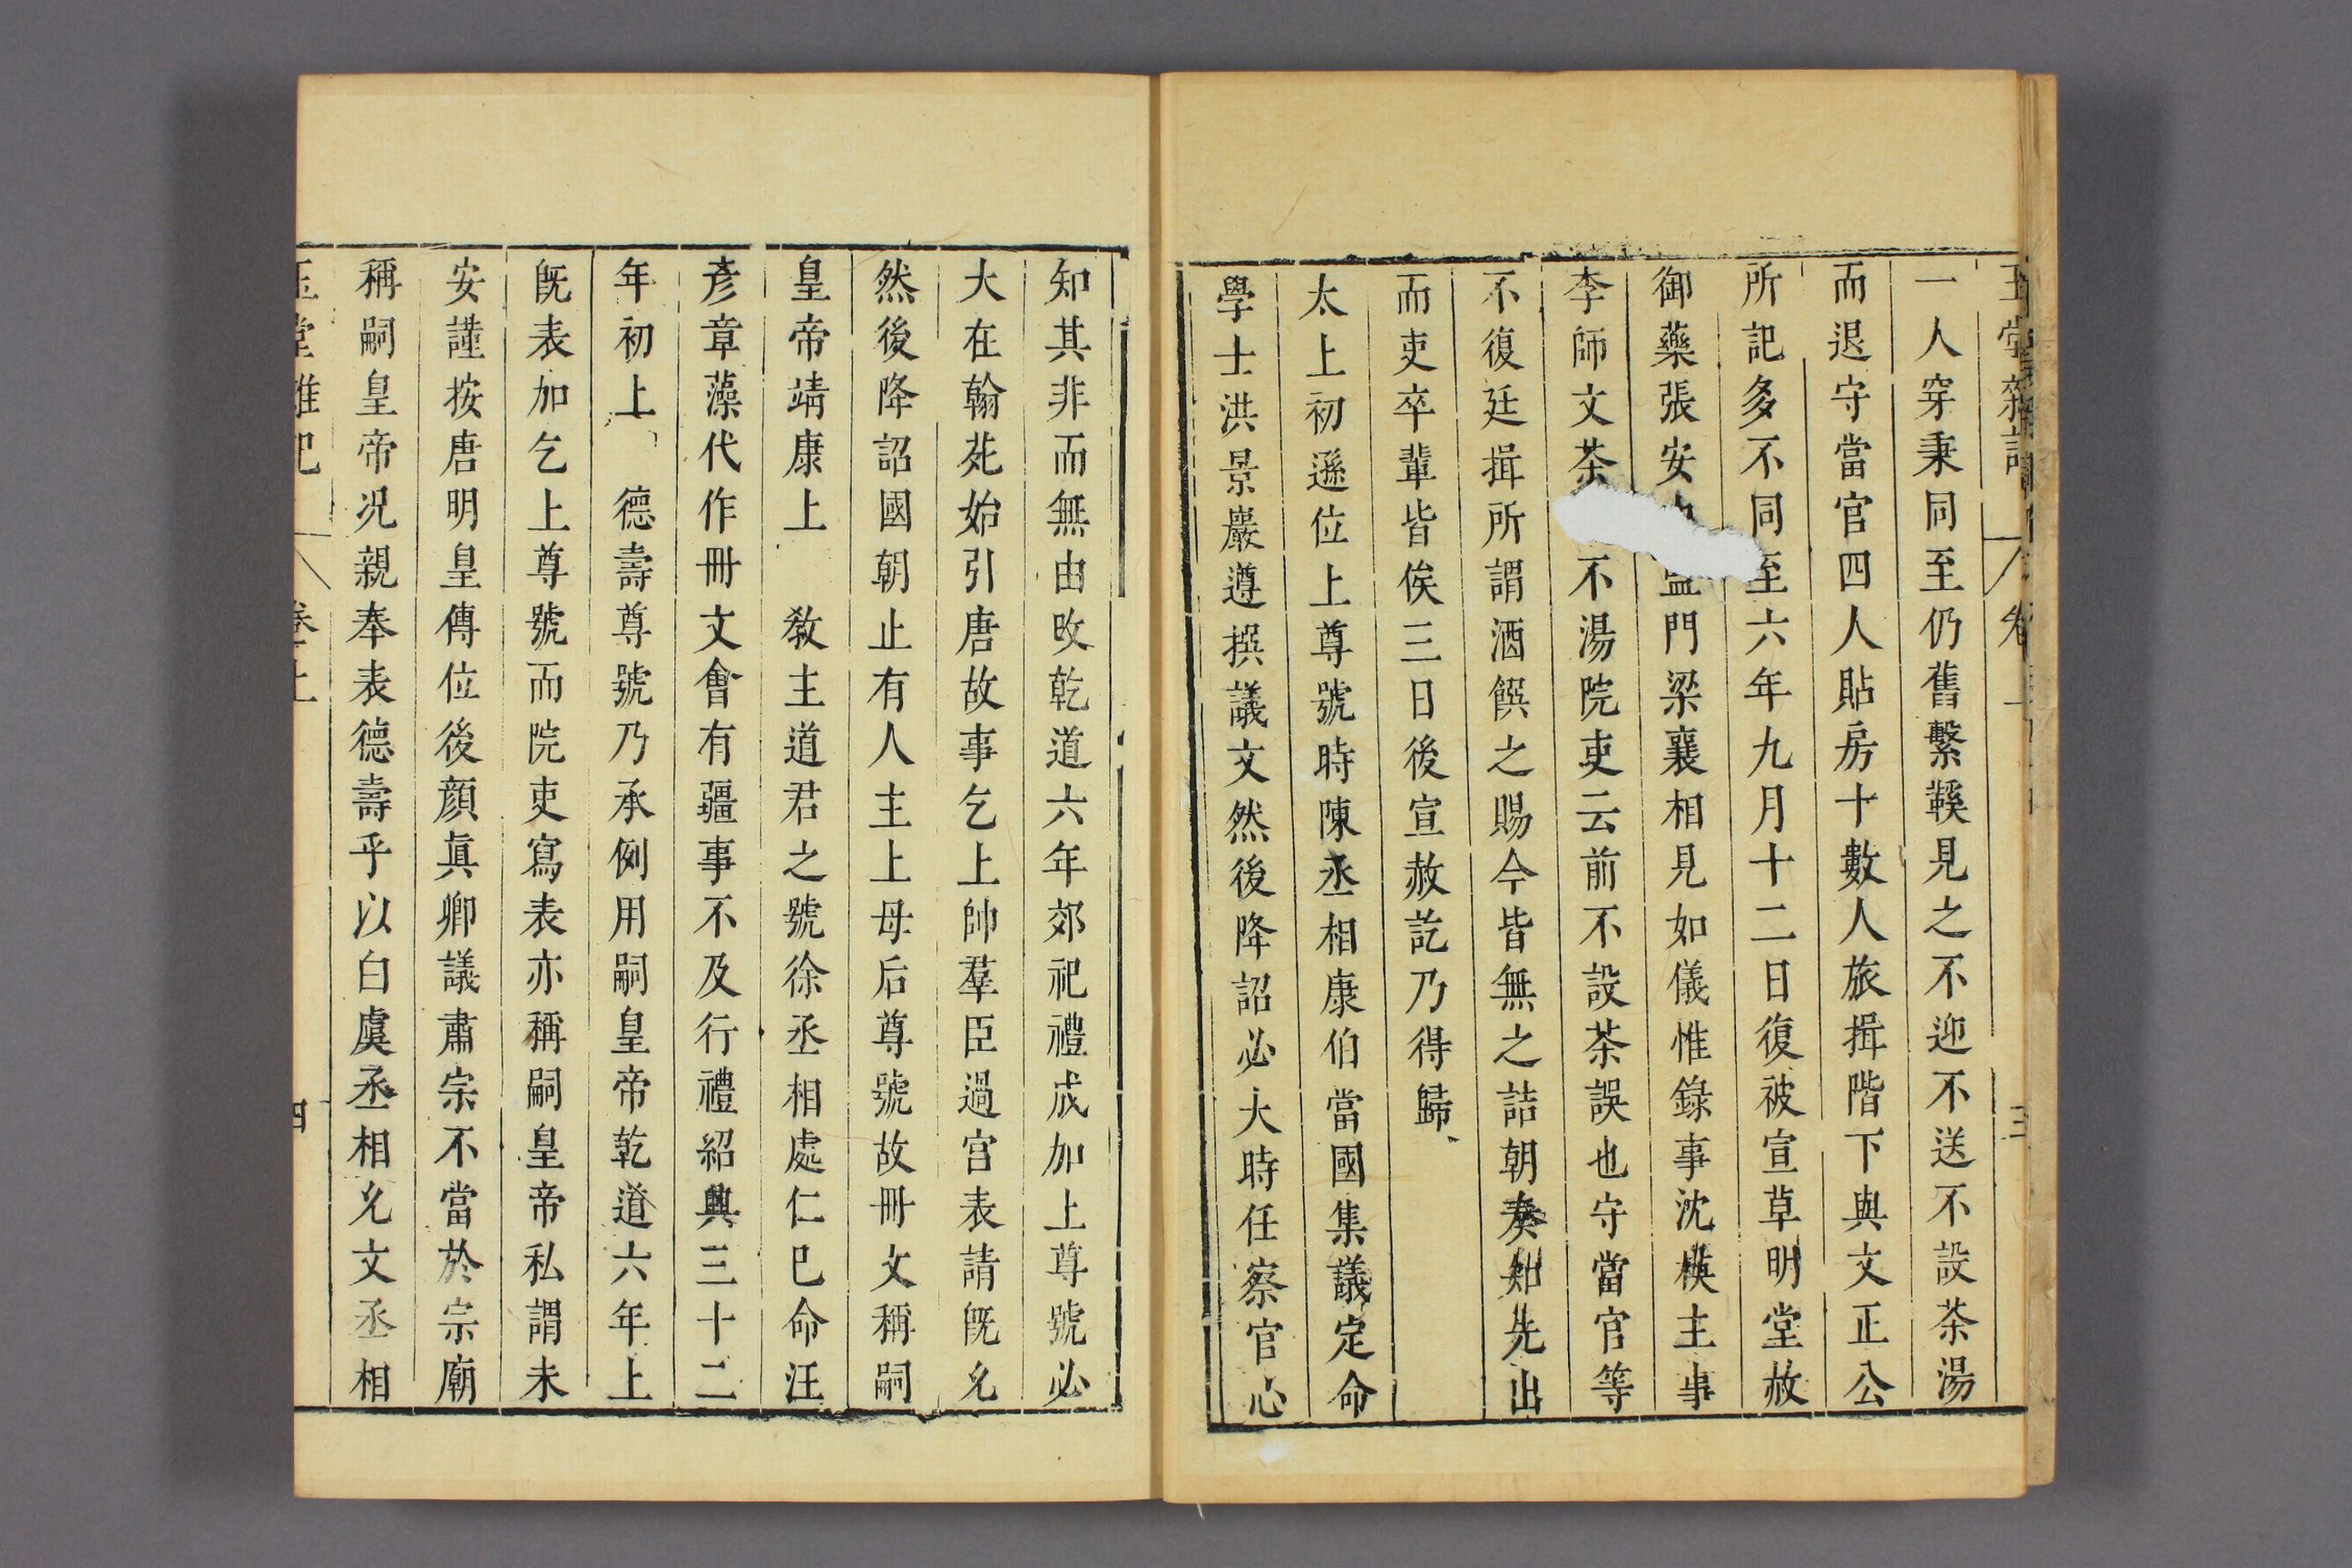 玉堂雜記 卷上 三
一人穿秉同至仍舊繫鞵見之不迎不送不設茶湯
而退守當官四人貼房十數人旅揖階下與文正公
所記多不同至六年九月十二日復被宣草明堂赦
御藥張安 監門梁襄相見如儀惟錄事沈模主事
李師文茶 不湯院吏云前不設茶誤也守當官等
不復廷揖所謂酒饌之賜今皆無之詰朝奏知先出
而吏卒輩皆俟三日後宣赦訖乃得歸
太上初遜位上尊號時陳丞相康伯當國集議定命
學士洪景嚴遵撰議文然後降詔必大時任察官心
知其非而無由改乾道六年郊祀禮成加上尊號必
大在翰苑始引唐故事乞上帥羣臣過宫表請旣允
然後降詔國朝止有人主上母后尊號故冊文稱嗣
皇帝靖康上 教主道君之號徐丞相處仁巳命汪
彥章藻代作冊文會有疆事不及行禮紹興三十二
年初上 德壽尊號乃承例用嗣皇帝乾道六年上
旣表加乞上尊號而院吏寫表亦稱嗣皇帝私謂未
安謹按唐明皇傳位後顔眞卿議肅宗不當於宗廟
稱嗣皇帝况親奉表德壽乎以白虞丞相允文丞相
玉堂雜記 卷上 四